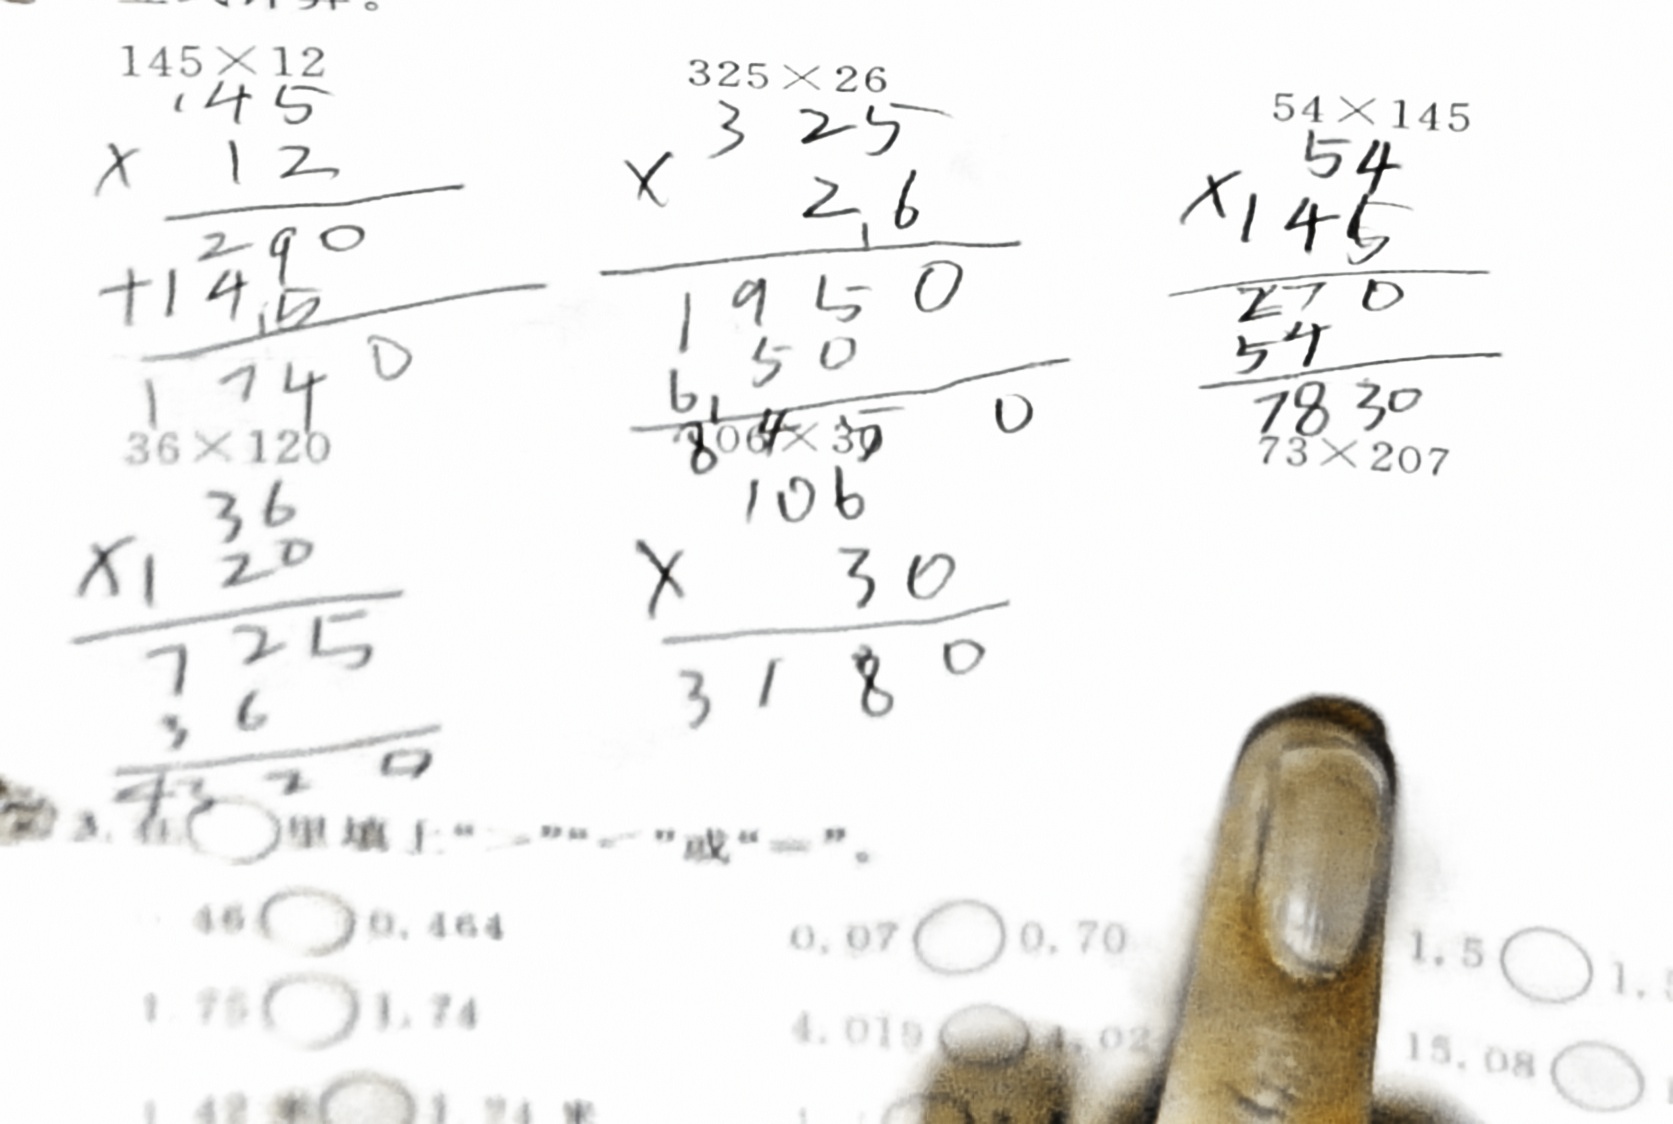 145×12
145
× 12
290
+145
1740
325×26
325
× 26
1950
650
8450
54×145
54
×145
270
54
7830
36×120
36
×120
725
36
4320
106×30
106
× 30
3180
73×207
3.在○里填上“>”“<”或“=”。
46○0.464
0.07○0.70
1.5○1.
1.75○1.74
4.019○4.02
15.08○
1.42米○1.24米